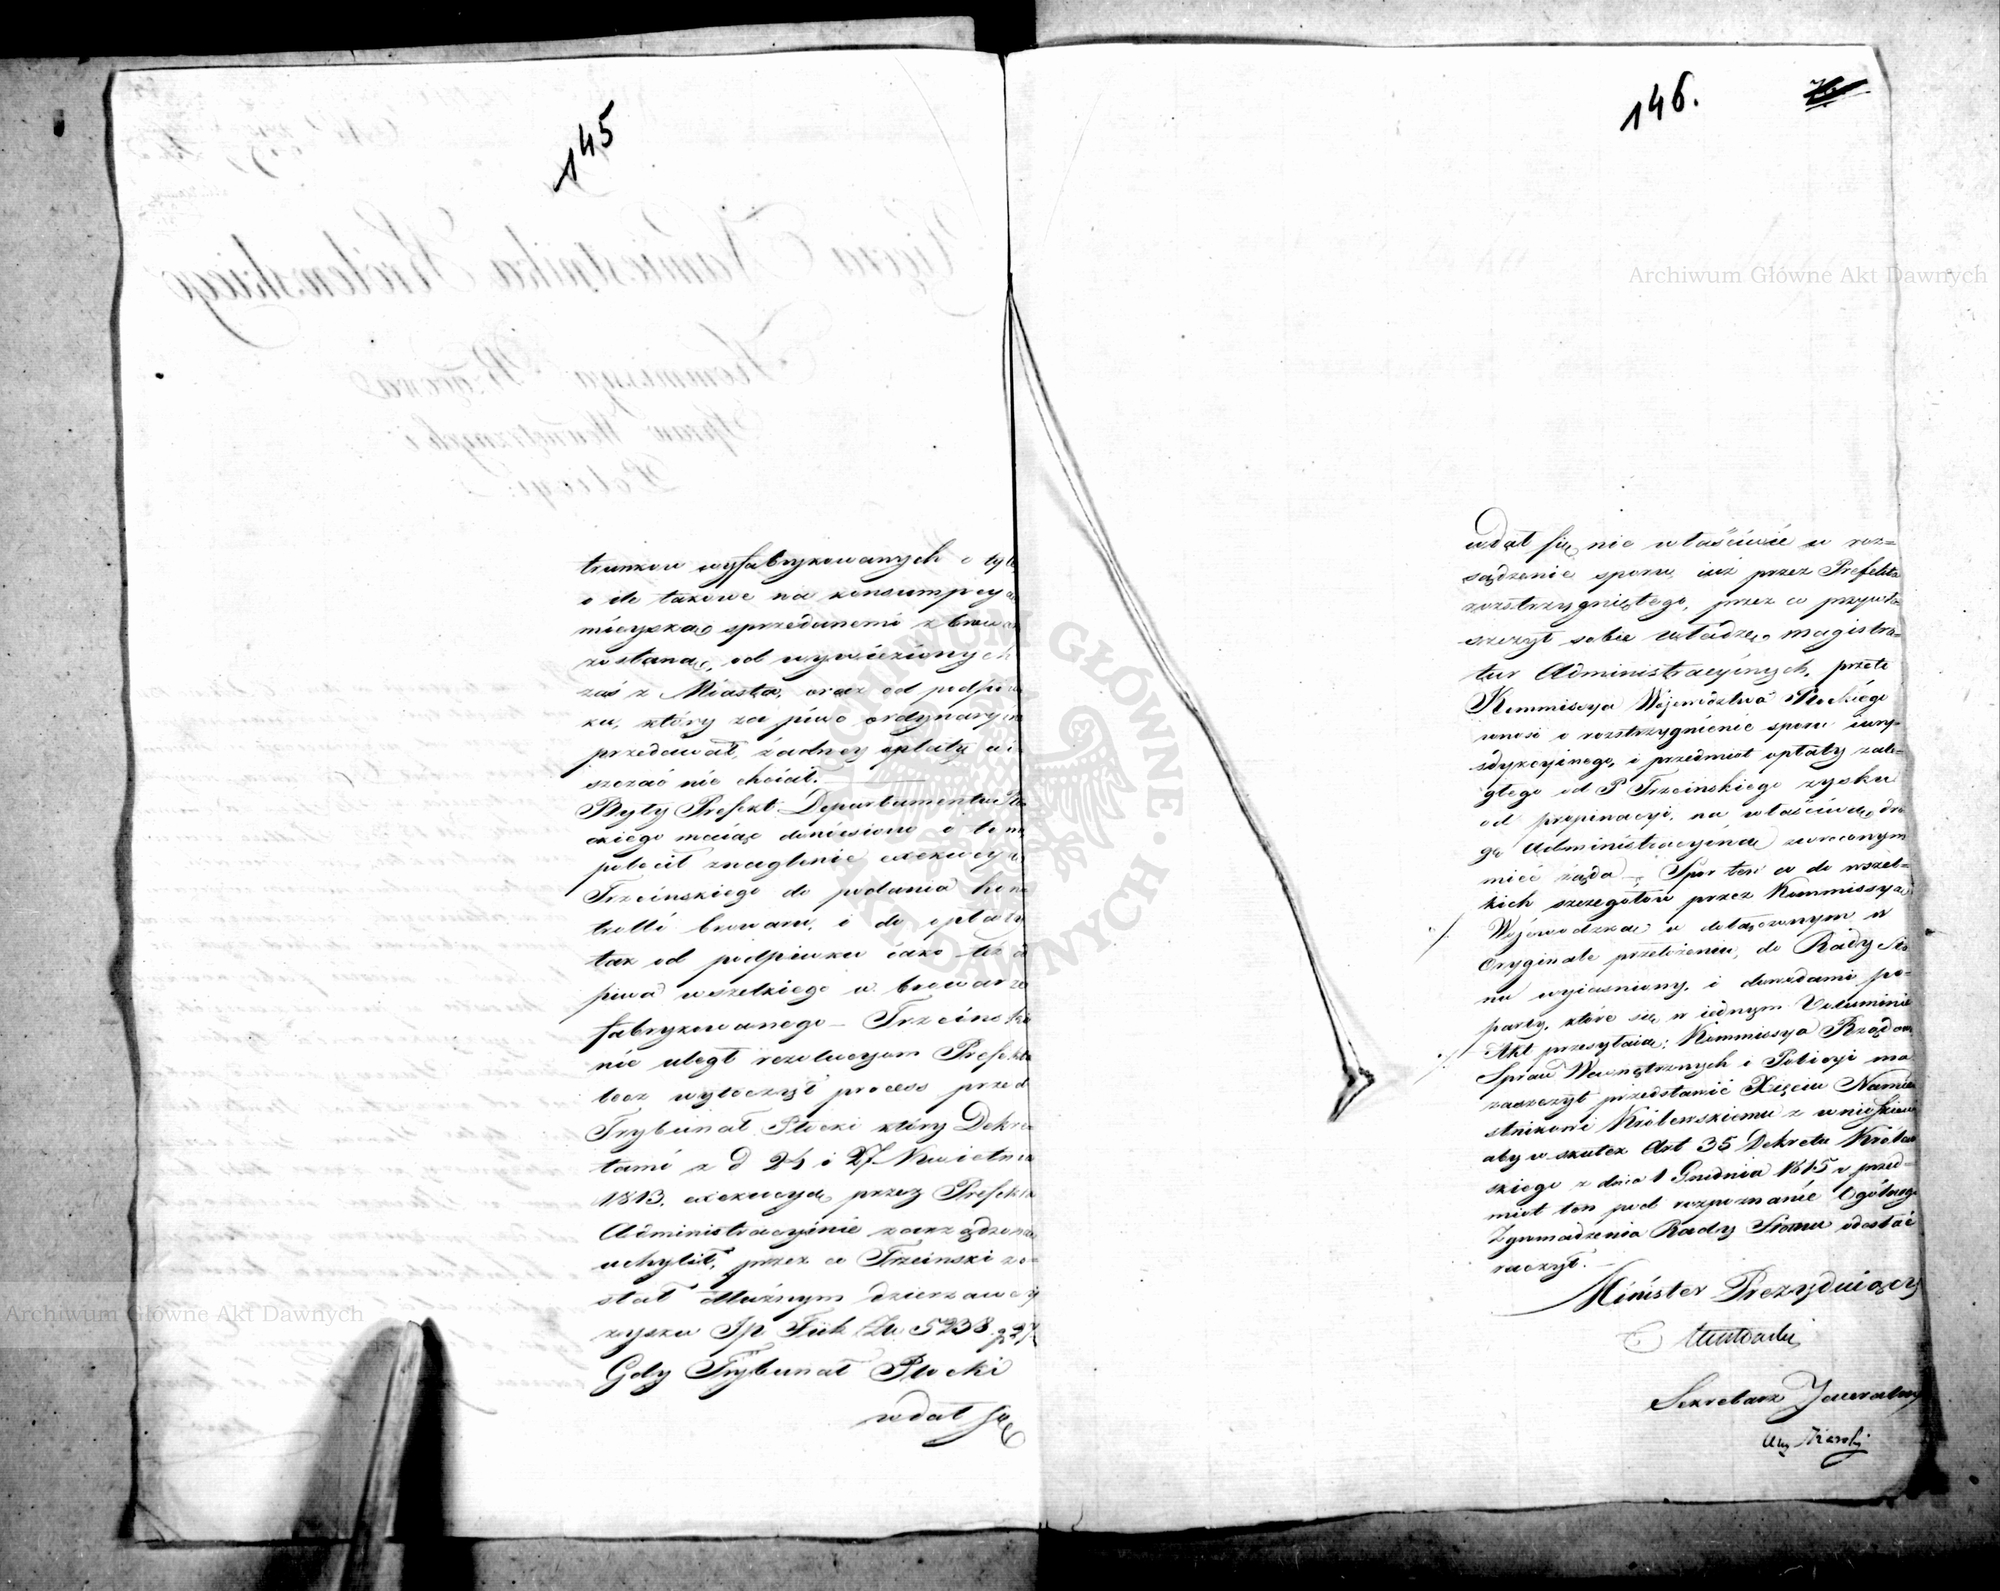 145
trunkow wyfabrykowanych o tyle
o ile takowe na konsumpcyą
mieyską sprzedanemi z browaru
zostaną, od wywiezionych
zaś z Miasta, oraz od podpiw
ku, który za piwo ordynaryine
przedawał, żadney opłaty ui=
szczać nie chciał.
Były Prefekt Departamentu Pło
ckiego maiąc doniesiono o tem
polecił znaglenie exekucyą
Trzcińskiego do podania kon
trolli browaru, i do opłaty
tak od podpiwku iako też od
piwa wszelkiego w browarze
fabrykowanego – Trzciński
nie uległ rezolucyom Prefekta
lecz wytoczył process przed
Trybunał Płocki który Dekre
tami z d 24 i 27 Kwietnia
1813. exekucyą przez Prefekta
Administracyinie zarządzoną
uchylił, przez co Trzcinski zo=
stał dłużnym dzierzawcy
zysku Sp 5238
Gdy Trybunał Płocki
udał się
146.
udał się nie właściwie w roz=
sądzenie sporu iuż przez Prefekta
rozstrzygniętego, przez co przywła
szczył sobie władzę magistra=
tur Administracyinych, przeto
Kommissya Województwa Płockiego
wnosi o rozstrzygnienie sporu iury=
sdykcyinego, i przedmiot opłaty zale=
głego od P Trzcinskiego zysku
od propinacyi, na właściwą dro
gę Administracyiną zwróconym
mieć żąda – Spor ten co do wszel=
kich szczegółów przez Kommissyą
Wojewodzką w dołączonym w
Oryginale przełożeniu, do Rady Sta
nu wyiasniony, i dowodami po=
party, które się w iednym Voluminie
Akt przesyłaią; Kommissya Rządowa
Spraw Wewnętrznych i Policyi ma
zaszczyt przedstawić Xięciu Namie
stnikowi Królewskiemu z wnioskiem
aby w skutek Art 35 Dekretu Królew
skiego z dnia 1 Grudnia 1815 r przed=
miot ten pod rozpoznanie Ogólnego
Zgromadzenia Rady Stanu odesłać
raczył.
Minister Prezyduiący
Sekretarz Jeneralny
Archiwum Główne Akt Dawnych
Archiwum Główne Akt Dawnych
ARCHIWUM GŁÓWNE · AKT DAWNYCH ·